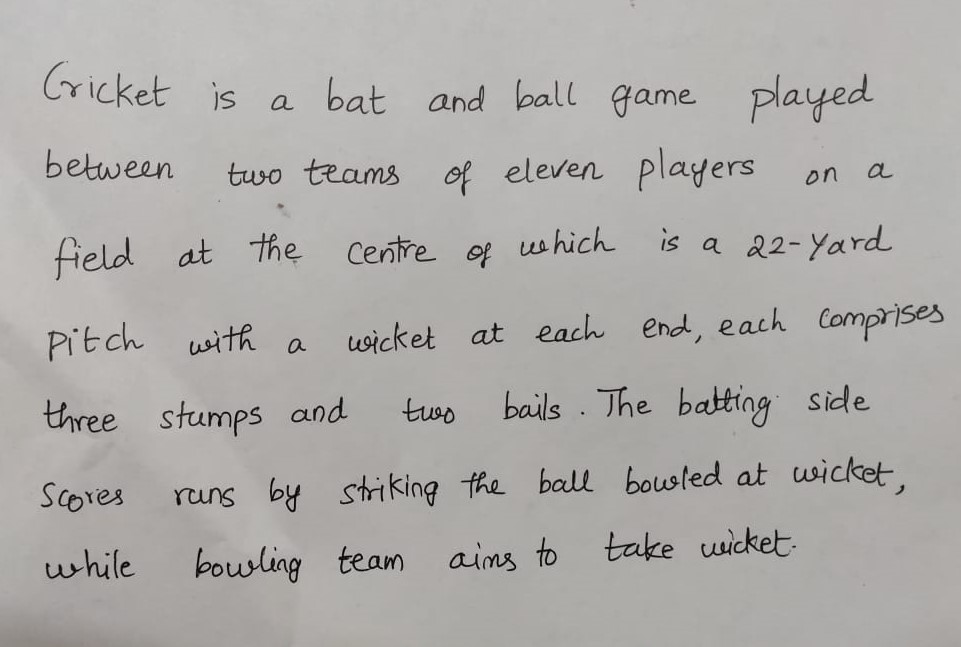 Cricket is a bat and ball game played
between two teams of eleven players on a
field at the centre of which is a 22-yard
Pitch with a wicket at each end, each comprises
three stumps and two bails. The batting side
Scores runs by striking the ball bowled at wicket,
while bowling team aims to take wicket.